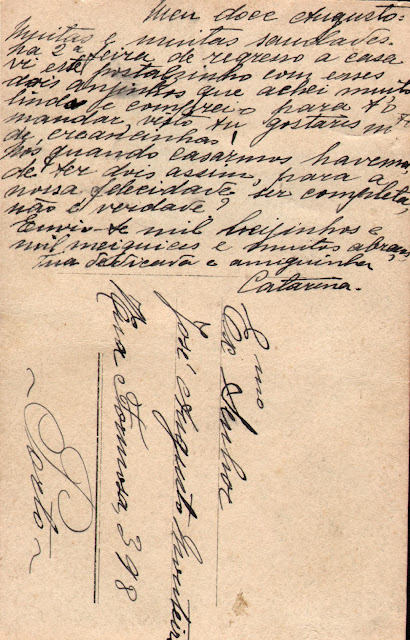 Meu doce Augusto:
Muitas e muitas saudades.
Na 2ª feira de regresso a casa
vi este postalzinho com esses
dois anjinhos que achei muito
lindo e comprei-o para t'o
mandar, visto tu gostares mto
de creancinhas!
Nós quando casarmos havemos
de ter dois assim, para a
nossa felicidade ser completa,
não é verdade?
Envio-te mil beijinhos e
mil meiguices e muitos abraços
tua dedicada e amiguinha
Catarina.
Exmo Senhor
José Augusto Monteiro
Rua Formosa, 398
~ Porto ~